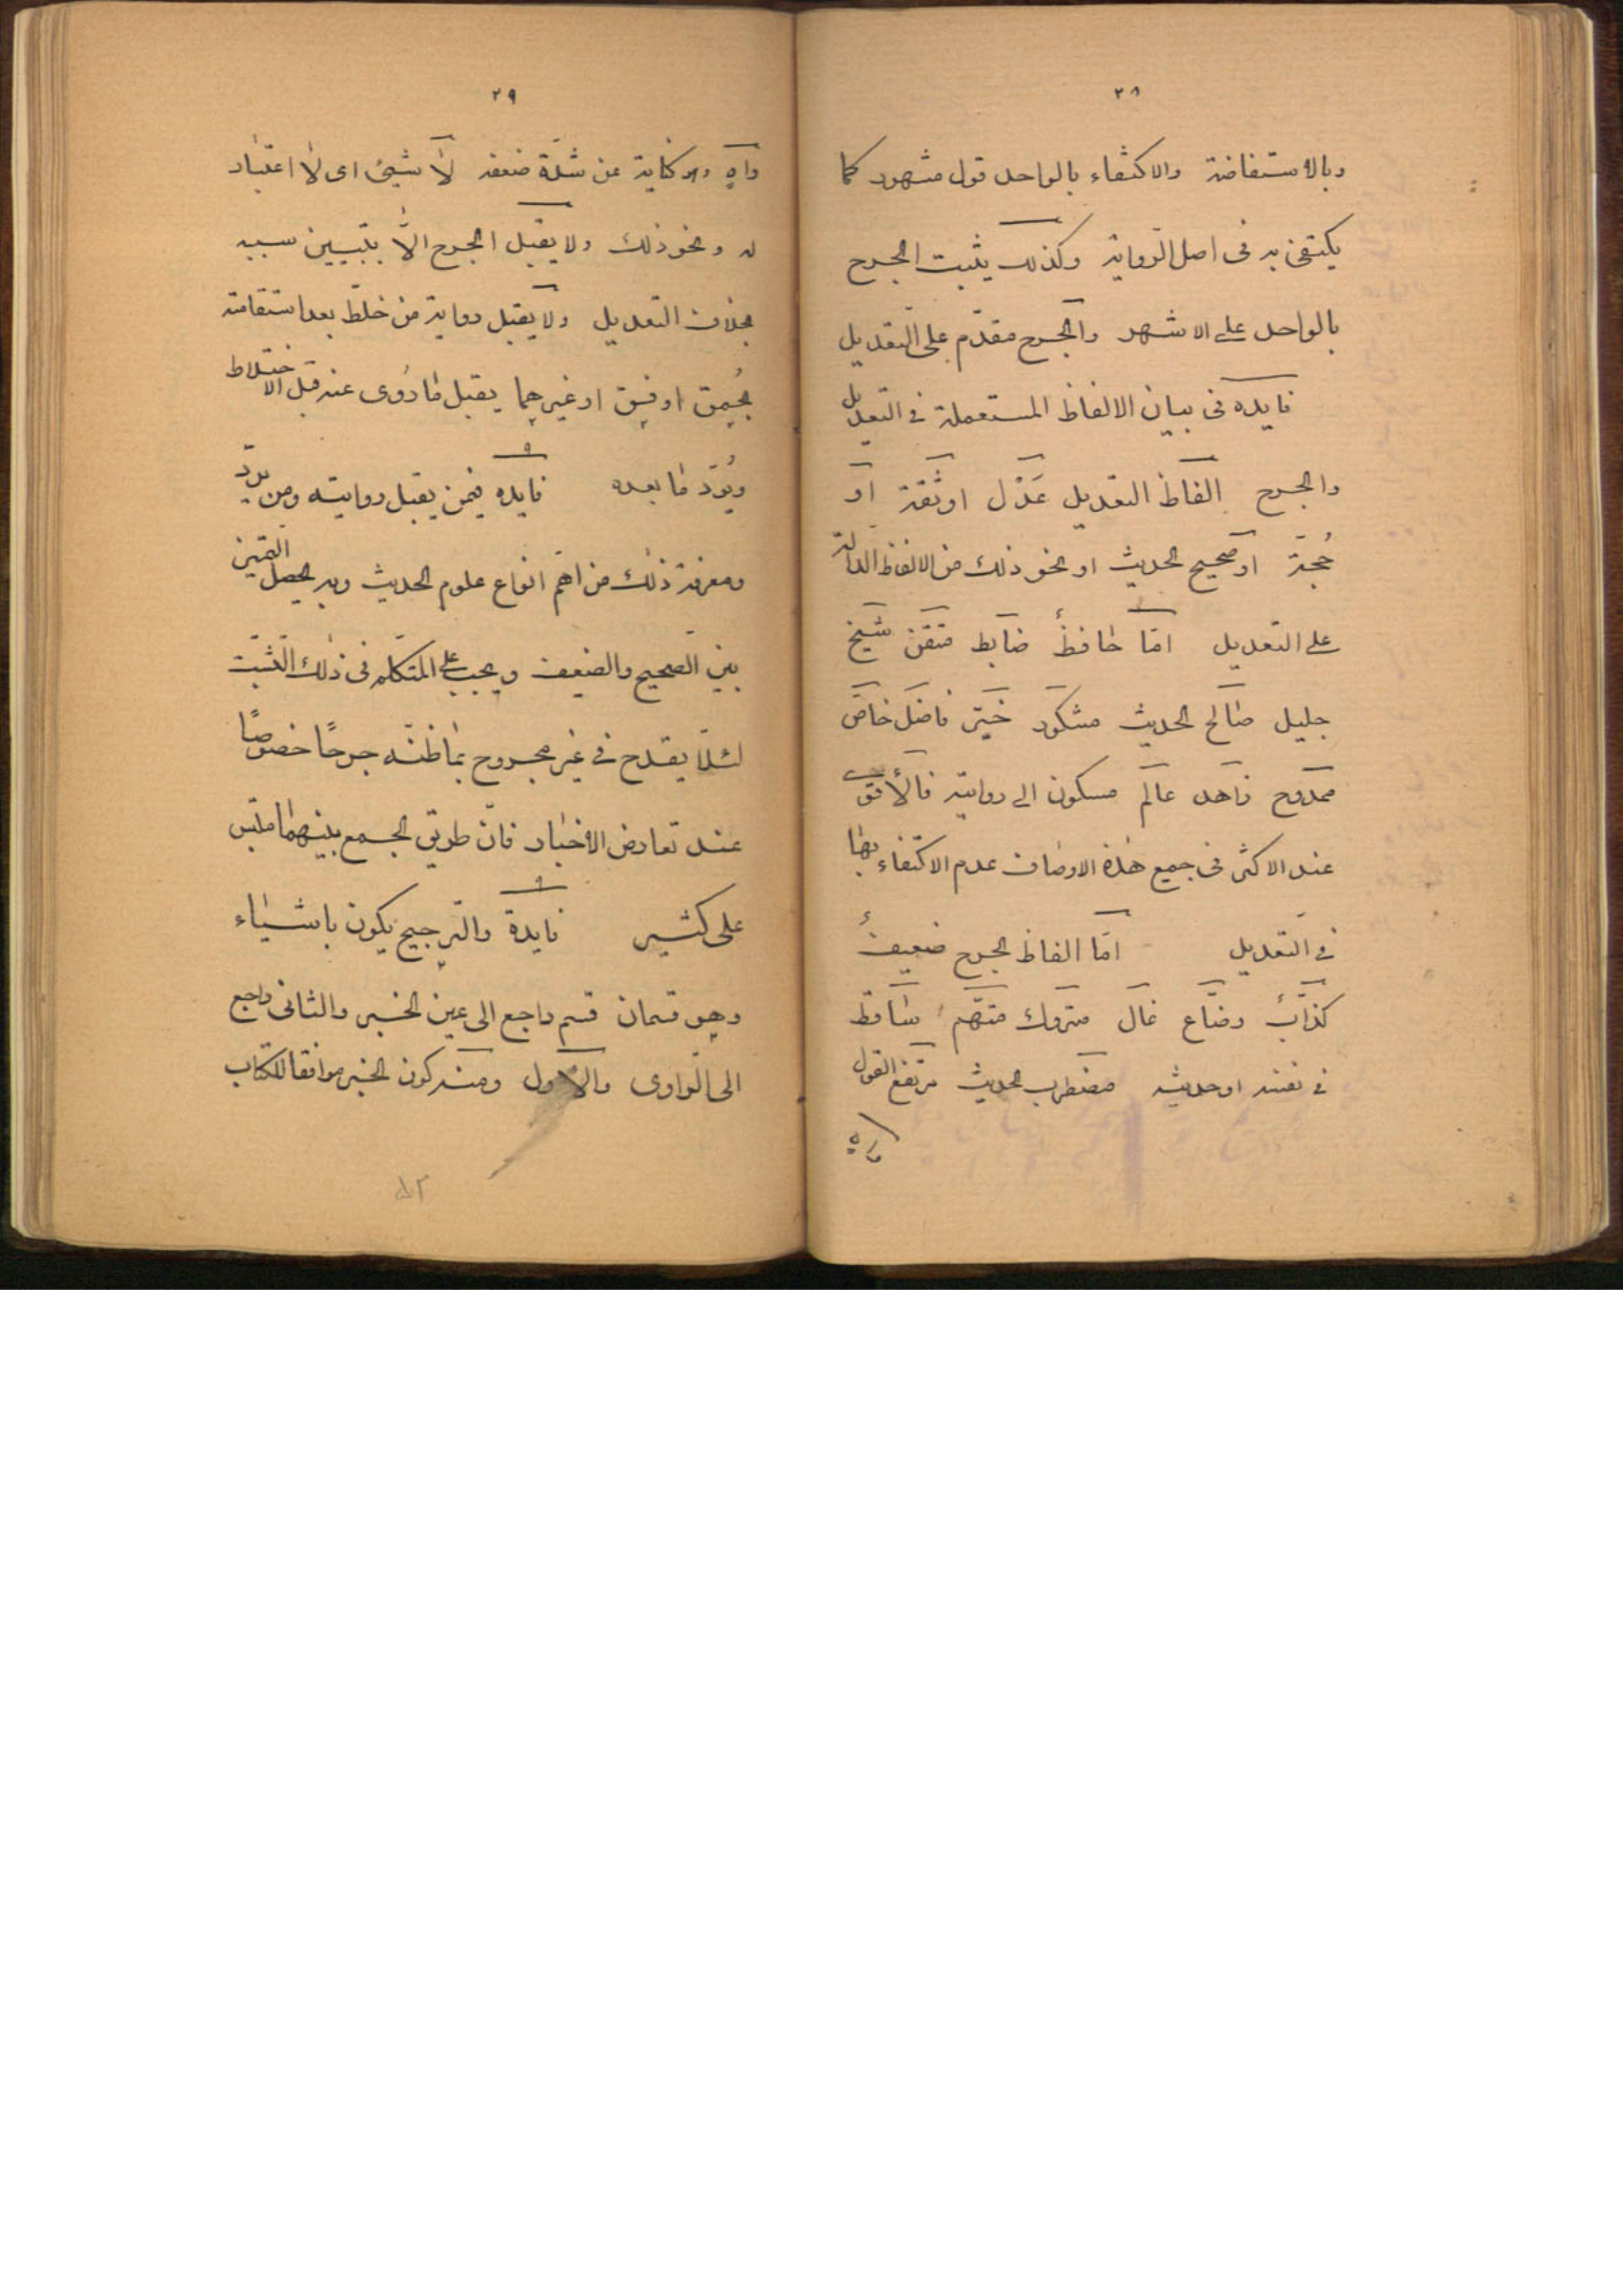 ٢٨
وبالاستفاضة والاكتفاء بالواحد قول مشهور كما
يكتفى به فى اصل الرواية وكذلك يثبت الجرح
بالواحد على الاشهر والجرح مقدّم على التعديل
فايده فى بيان الالفاظ المستعملة فى التعديل
والجرح الفاظ التعديل عَدْل او ثقة او
حُجة او صحيح الحديث او نحو ذلك من الالفاظ الدالة
على التعديل امّا حافظ ضابط متقن شيخ
جليل صالح الحديث مشكور خيّر فاضل خاصّ
ممدوح زاهد عالم مسكون الى روايته فالأقوى
عند الاكثر فى جميع هذه الاوصاف عدم الاكتفاء بها
فى التعديل امّا الفاظ الجرح ضعيف
كذّاب وضّاع غال متروك متّهم ساقط
فى نفسه او حديثه مضطرب الحديث مرتفع القول
واه
٢٩
واهٍ وهو كناية عن شدّة ضعفه لا شيئ اى لا اعتبار
له ونحو ذلك ولا يقبل الجرح الّا بتبيين سببه
بخلاف التعديل ولا يقبل رواية من خلط بعد استقامته
بحُمق او فسق او غيرهما يقبل ما رُوى عنه قبل الاختلاط
ويُردّ ما بعده فايده فيمن يقبل روايته ومن يردّ
ومعرفة ذلك من اهمّ انواع علوم الحديث وبه يحصل التميز
بين الصحيح والضعيف ويجب على المتكلم فى ذلك التثبت
لئلّا يقدح فى غير مجروح بما ظنّه جرحًا خصوصًا
عند تعارض الاخبار فانّ طريق الجمع بينهما ملتبس
على كثير فايدة والترجيح يكون باشياء
وهو قسمان قسم راجع الى عين الخبر والثانى راجع
الى الراوى والاول ومنه كون الخبر موافقا للكتاب